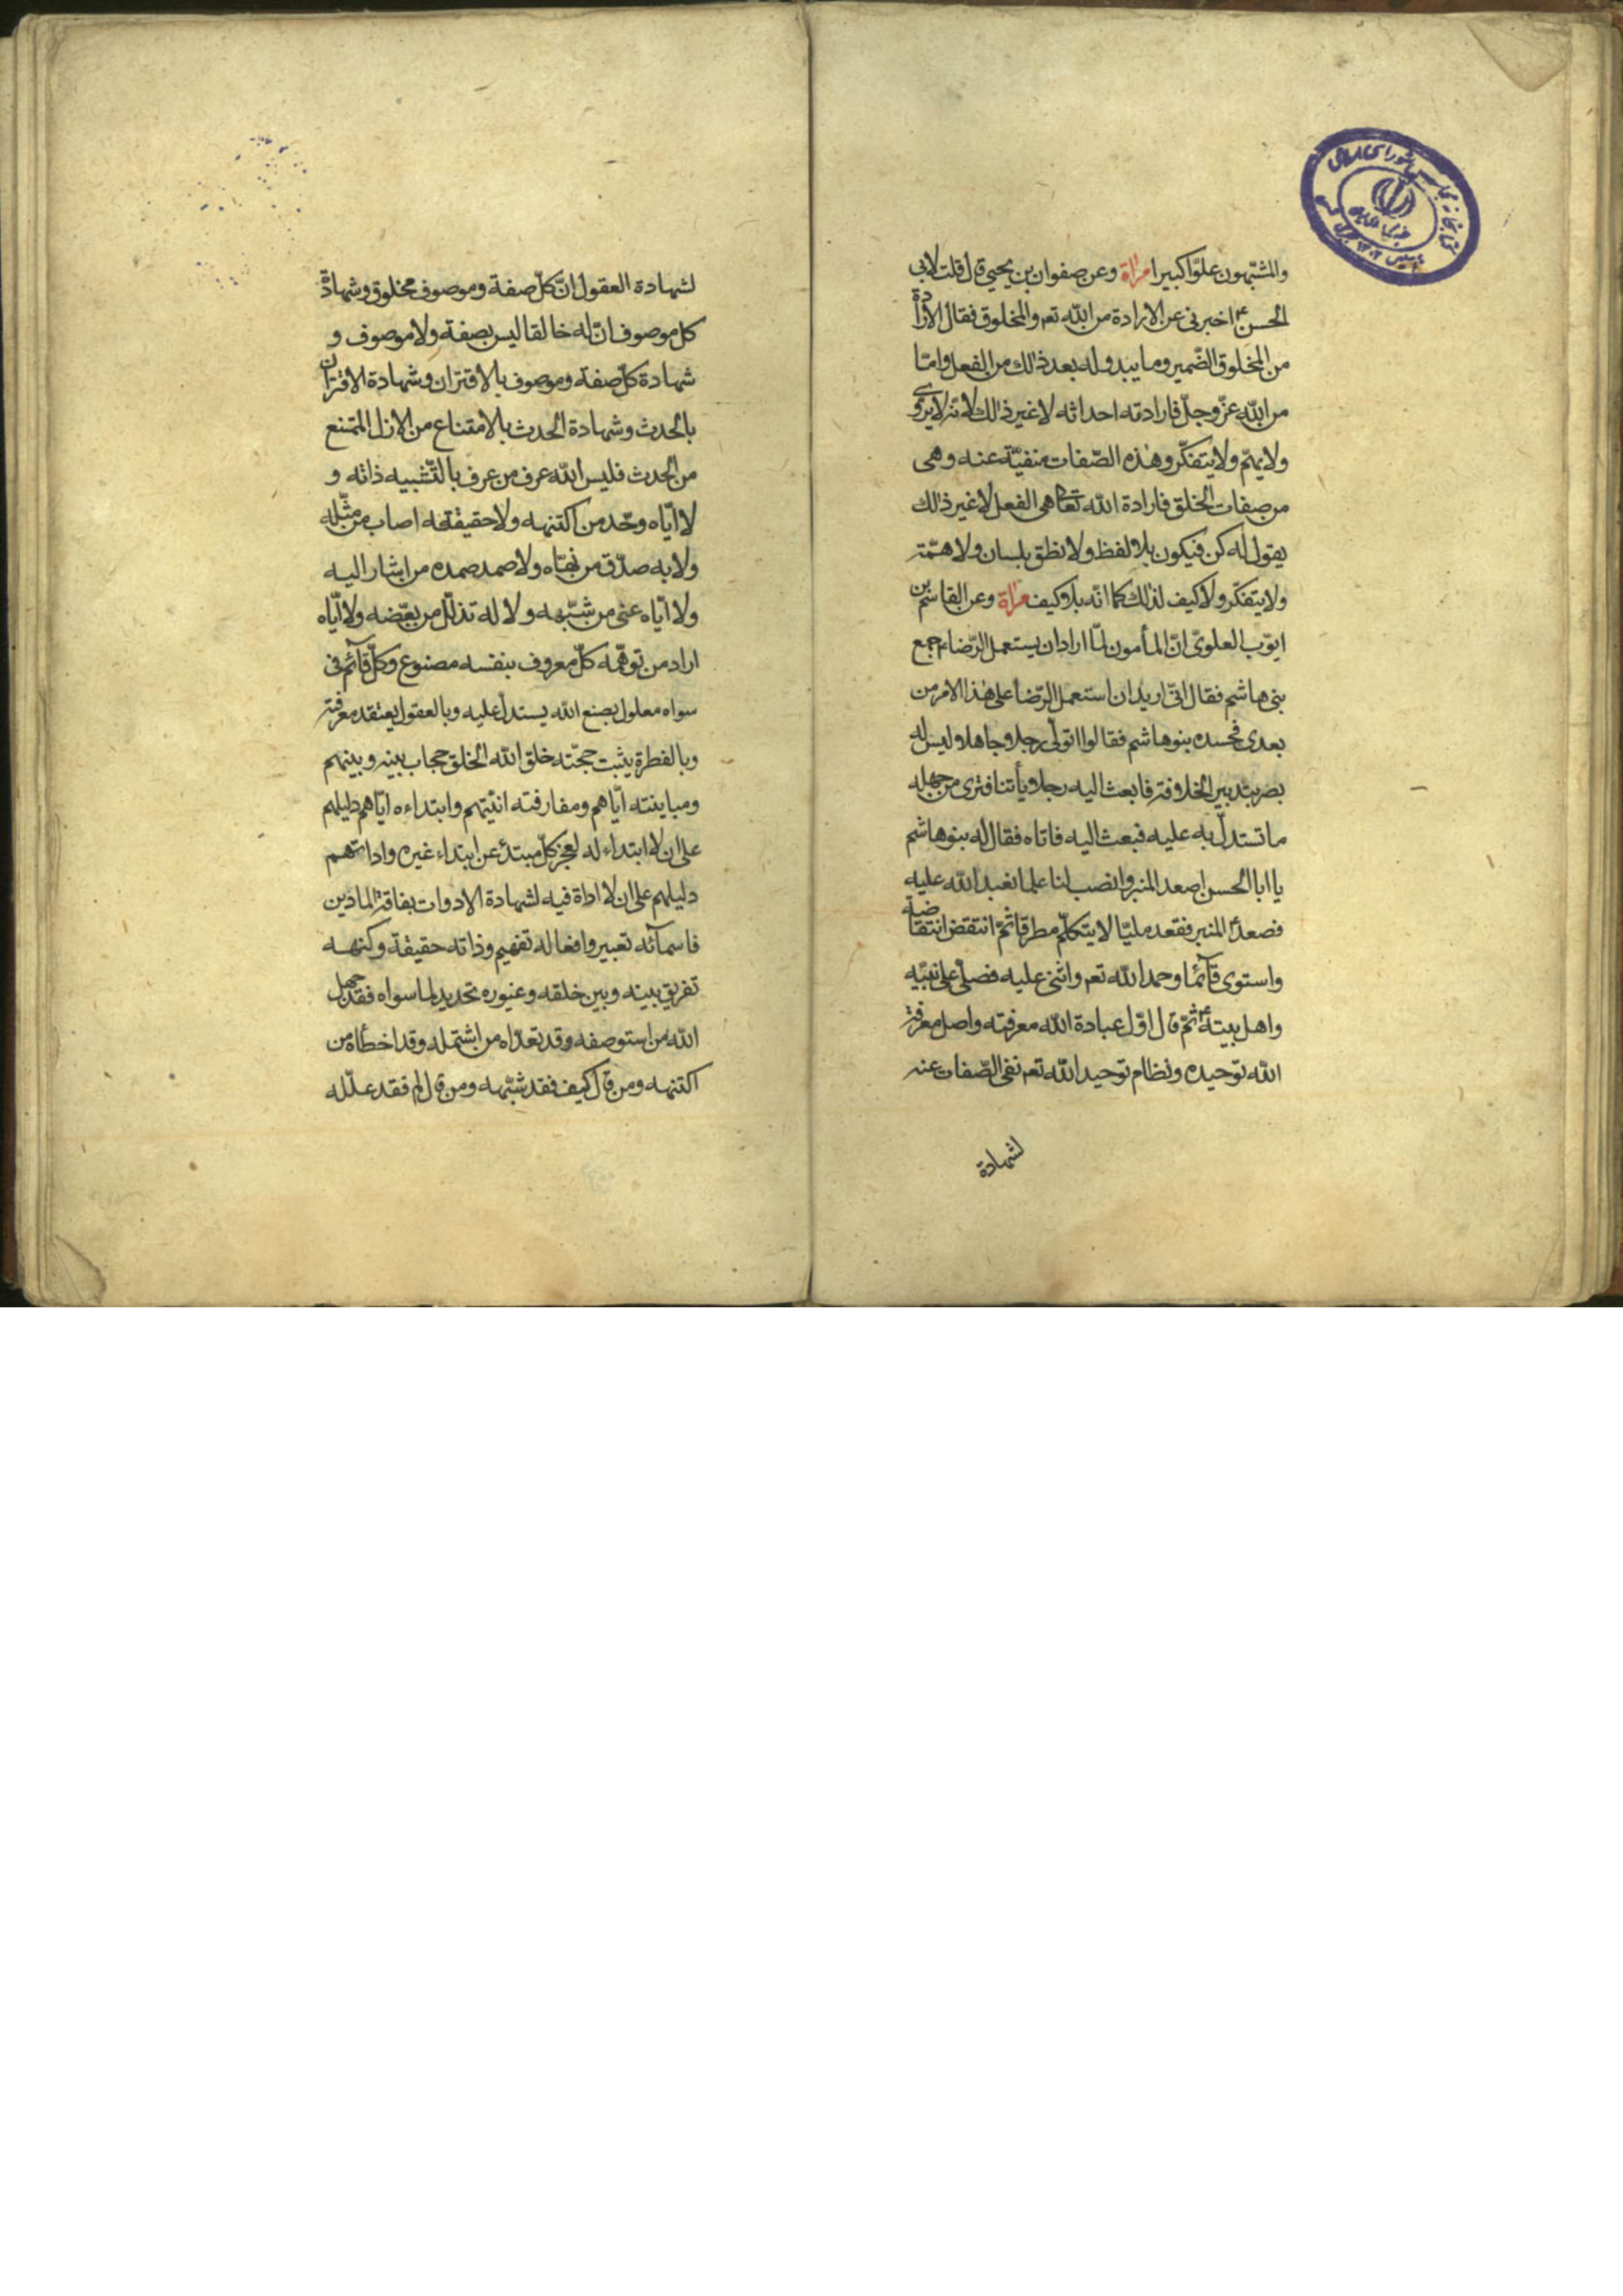 والمشبّهون علوّا كبيرا مرآة وعن صفوان بن يحيى قال قلت لابى
الحسن ع اخبرنى عن الارادة من الله تعم والمخلوق فقال الارادة
من المخلوق الضّمير وما يبدو له بعد ذلك من الفعل وامّا
من الله عزّ وجلّ فارادته احداثه لا غير ذلك لانه لا يروّى
ولا يهمّ ولا يتفكّر وهذه الصّفات منفيّة عنه وهى
من صفات الخلق فارادة الله تعالى هى الفعل لا غير ذلك
يقول له كن فيكون بلا لفظ ولا نطق بلسان ولا همّة
ولا يتفكّر ولا كيف لذلك كما انّه بلا كيف مرآة وعن القاسم بن
ايّوب العلوىّ انّ المأمون لمّا اراد ان يستعمل الرّضاء جمع
بنى هاشم فقال انّى اريد ان استعمل الرّضا على هذا الامر من
بعدى فحسده بنو هاشم فقالوا اتولّى رجلا جاهلا وليس له
بصر بتدبير الخلافة فابعث اليه رجلا يأتنا فترى من جهله
ما تستدلّ به عليه فبعث اليه فاتاه فقال له بنو هاشم
يا ابا الحسن اصعد المنبر وانصب لنا علما نعبد الله عليه
فصعد المنبر فقعد مليّا لا يتكلّم مطرقا ثمّ انتقض انتقاضة
واستوى قآئما وحمد الله تعم واثنى عليه فصلّى على نبيّه
واهل بيته ع ثمّ قال اوّل عبادة الله معرفته واصل معرفة
الله توحيده ونظام توحيد الله تعم نفى الصّفات عنه
لشهادة
لشهادة العقول انّ كلّ صفة وموصوف مخلوق وشهادة
كل موصوف انّ له خالقا ليس بصفة ولا موصوف و
شهادة كلّ صفة وموصوف بالاقتران وشهادة الاقتران
بالحدث وشهادة الحدث بالامتناع من الازل الممتنع
من الحدث فليس الله عرف من عرف بالتّشبيه ذاته و
لا ايّاه وحّد من اكتنهه ولا حقيقته اصاب من مثّله
ولا به صدّق من نهّاه ولا صمد صمده من اشار اليه
ولا ايّاه عنى من شبّهه ولا له تذلّل من بعّضه ولا ايّاه
اراد من توهّمه كلّ معروف بنفسه مصنوع وكلّ قآئم فى
سواه معلول بصنع الله يستدلّ عليه وبالعقول يعتقد معرفته
وبالفطرة يثبت حجّته خلق الله الخلق حجاب بينه وبينهم
ومباينته ايّاهم ومفارقته انيّتهم وابتداءه ايّاهم دليلهم
على ان لا ابتداء له لعجز كلّ مبتدئ عن ابتداء غيره واداتهم
دليلهم على ان لا اداة فيه لشهادة الادوات بفاقة المادين
فاسمآئه تعبير وافعاله تفهيم وذاته حقيقة وكنهه
تفريق بينه وبين خلقه وغيوره تحديد لما سواه فقد جهل
الله من استوصفه وقد تعدّاه من اشتمله وقد اخطأه من
اكتنهه ومن قال كيف فقد شبّهه ومن قال لم فقد علّله